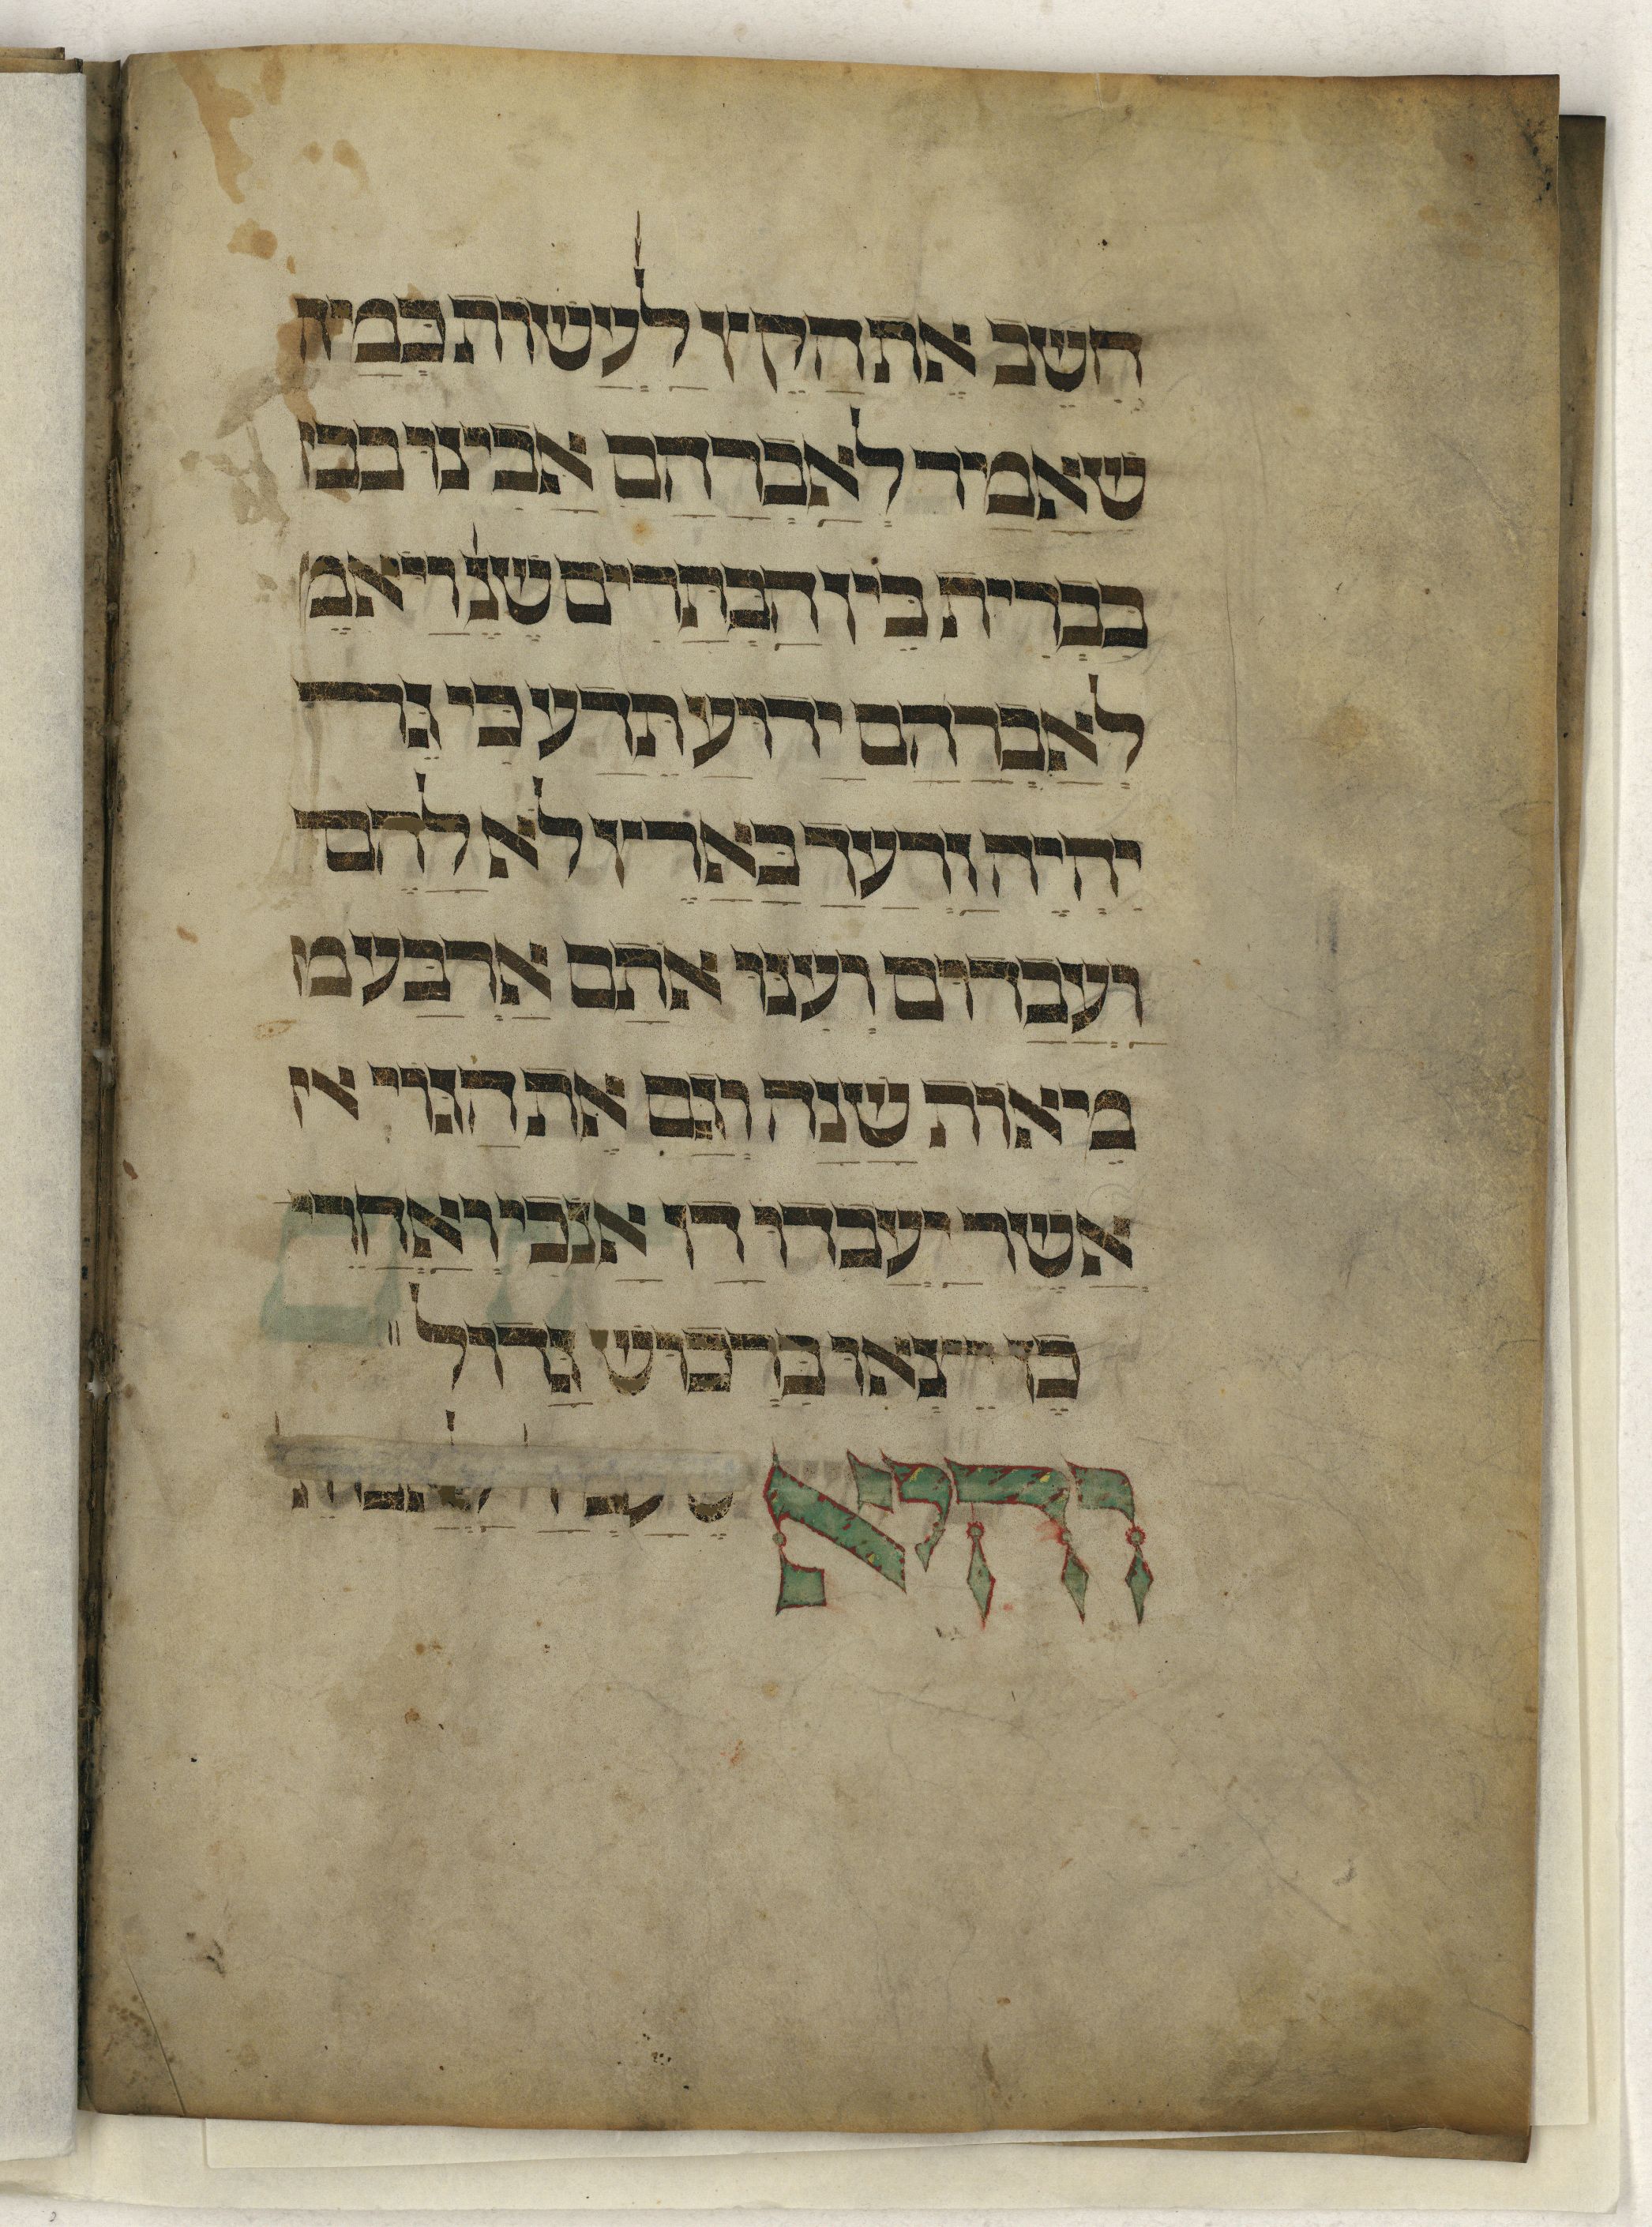 חִשֵׁב אֶת הַקֵץ לַעֲשׂות כְּמוֹ
שֶׁאָמַר לְאַבְרָהָם אָבִינוּ בבן
בִּבְרִית בֵּין הַבְּתָרִים שֶׁנֶ׳ וַיֹאמֶ
לְאַבְרָהָם יָדוֹעַ תֵּדַע כִּי גֵר
יִהְיֶה זַרְעֲךָ בְּאֶרֶץ לֹא לָהֶם
וַעֲבָדוּם וְעִנּוּ אֹתָם אַרְבַּע מ
מֵיאוֹת שָׁנָה וְגַם אֶת הַגּוֹי א
אֲשֶׁר יַעֲבֹדוּ דָּן אָנֹכִי וְאַחֲרֵי
כֵן יֵצְאוּ בִּרְכוּשׁ גָּדוֹל
והיא